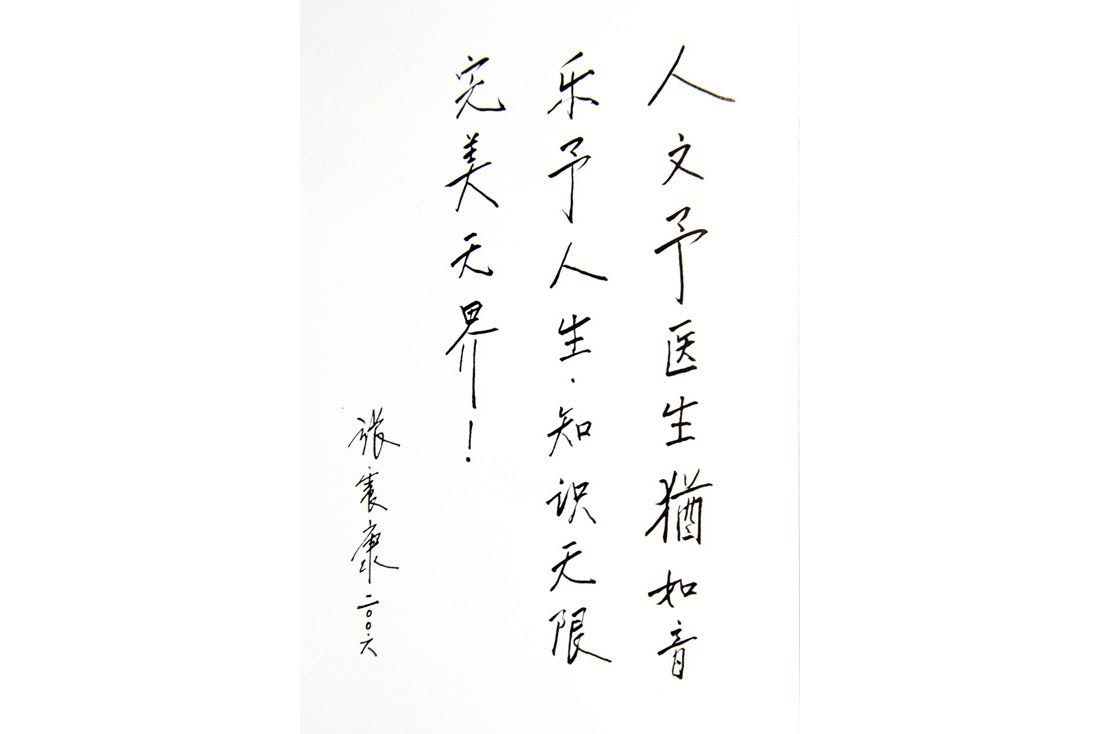 人文予医生猶如音
乐予人生·知识无限
完美无界！
张震康二〇〇六